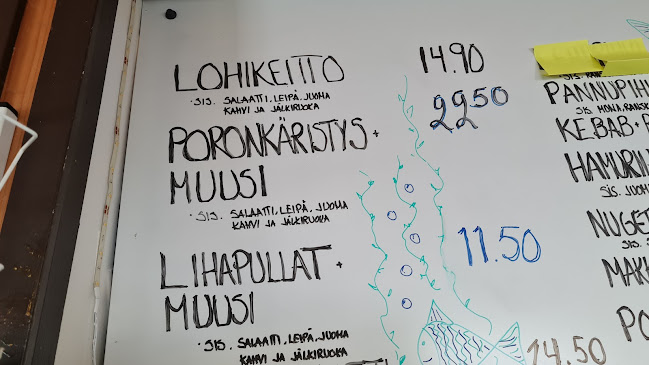 LOHIKEITTO 14.90
·SIS. SALAATTI, LEIPÄ, JUOMA
KAHVI JA JÄLKIRUOKA
PORONKÄRISTYS + 22.50
MUUSI
·SIS. SALAATTI, LEIPÄ, JUOMA
KAHVI JA JÄLKIRUOKA
LIHAPULLAT + 11.50
MUUSI
·SIS. SALAATTI, LEIPÄ, JUOMA
KAHVI JA JÄLKIRUOKA
14.50
SIS.
PANNUPIH
SIS. MUNA, RANSK
KEBAB +
HAMURIL
SIS. JUOM
NUGET
SIS.
MAK
PO